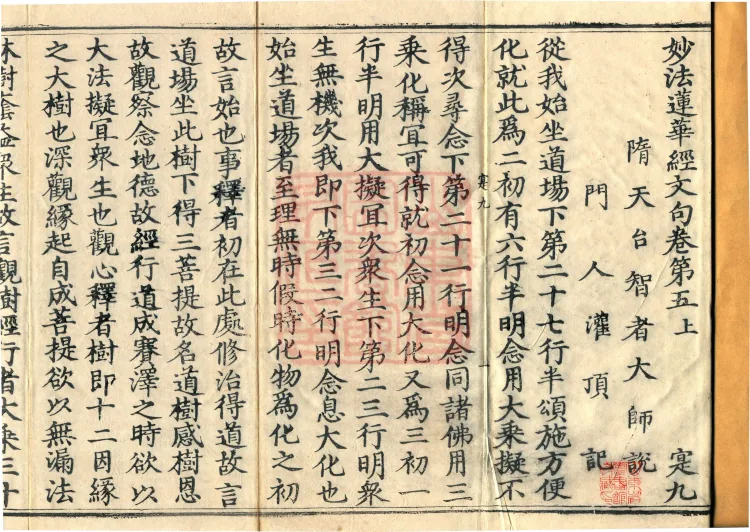 妙法蓮華經文句卷第五上 寔九
隋天台智者大師說
門人灌頂記
從我始坐道場下第二十七行半頌施方便
化就此爲二初有六行半明念用大乘擬不
得次尋念下第二十一行明念同諸佛用三
寔九
乘化稱宜可得就初念用大化又爲三初一
行半明用大擬宜次衆生下第二三行明衆
生無機次我即下第三二行明念息大化也
始坐道場者至理無時假時化物爲化之初
故言始也事釋者初在此處修治得道故言
道場坐此樹下得三菩提故名道樹感樹恩
故觀察念地德故經行道成賽澤之時欲以
大法擬宜衆生也觀心釋者樹即十二因緣
之大樹也深觀緣起自成菩提欲以無漏法
林樹蔭益衆生故言觀樹經行者大乘三十